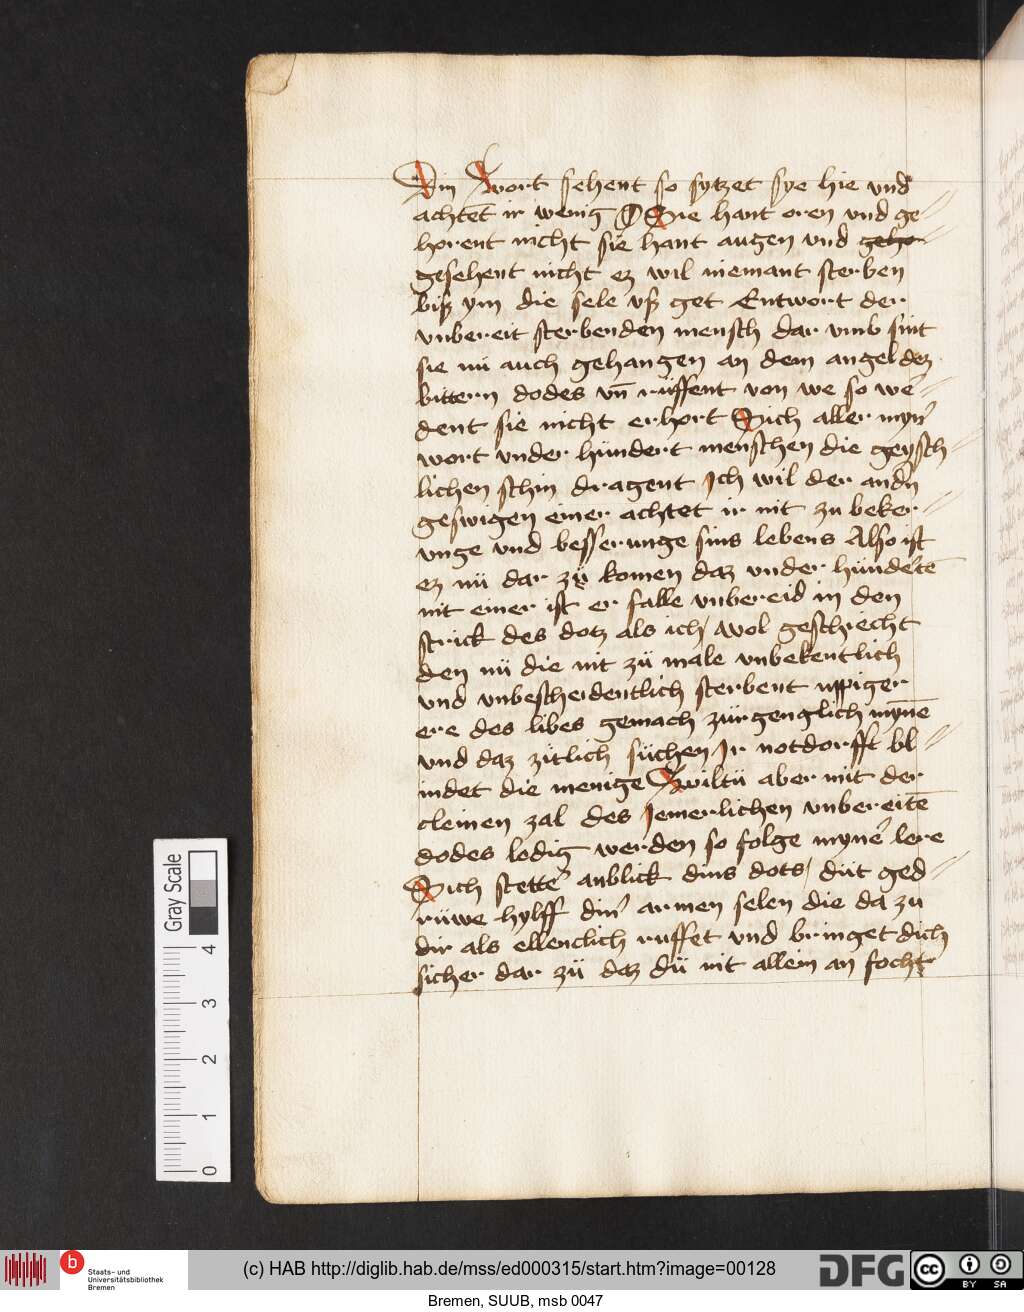 Am Awort sehent so sytzet sye hie vnd
achtet ir wenig O Sie hant oren vnd ge
horent nicht sie hant augen vnd geho
gesehent nicht ez wil niemant sterben
biß ym die sele vß get Entwort der
vnbereit sterbenden mensch dar vmb sint
sie nü auch gehangen an dem angel dez
bittern dodes vn̄ rüffent von we so we
dent sie nicht erhort Sich aller myn
wort vnder hündert menschen die geysch
lichen schin dragent Ich wil der andn
geswigen einer achtet ir nit zu beker
vnge vnd besserunge sins lebens Also ist
ez nü dar zü komen daz vnder hünderte
nit einer ist er falle vnbereid in den
strick des dotz als ich wol geschrecht
den nü die nit zü male vnbekentlich
vnd vnbescheidentlich sterbent uppiger
ere des libes gemach zürgenglich mynē
vnd daz zitlich süchen Ir notdorfft bl
indet die menige Awiltü aber mit der
cleinen zal des Jemerlichen vnbereitē
dodes ledig werden so folge myne lere
Sich stette anblick dins dots / düt ged
rüwe hylff din armen selen die da zu
dir als ellenclich ruffet vnd bringet dich
sicher dar zü daz dü nit allein an focht
Gray Scale
4
3
2
1
0
Staats- und
Universitätsbibliothek
Bremen
(c) HAB http://diglib.hab.de/mss/ed000315/start.htm?image=00128
DFG
cc BY SA
Bremen, SUUB, msb 0047